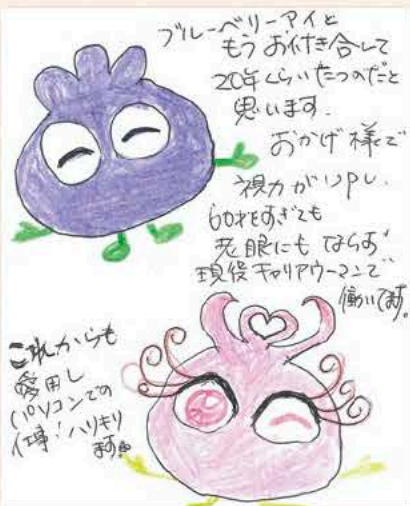 ブルーベリーアイと
もうお付き合して
20年くらいたつのだと
思います。
おかげ様で
視力がUPし、
60才をすぎても
老眼にもならず
現役キャリアウーマンで
働いてます。
これからも
愛用し
パソコンでの
仕事!ハリキリ
ます